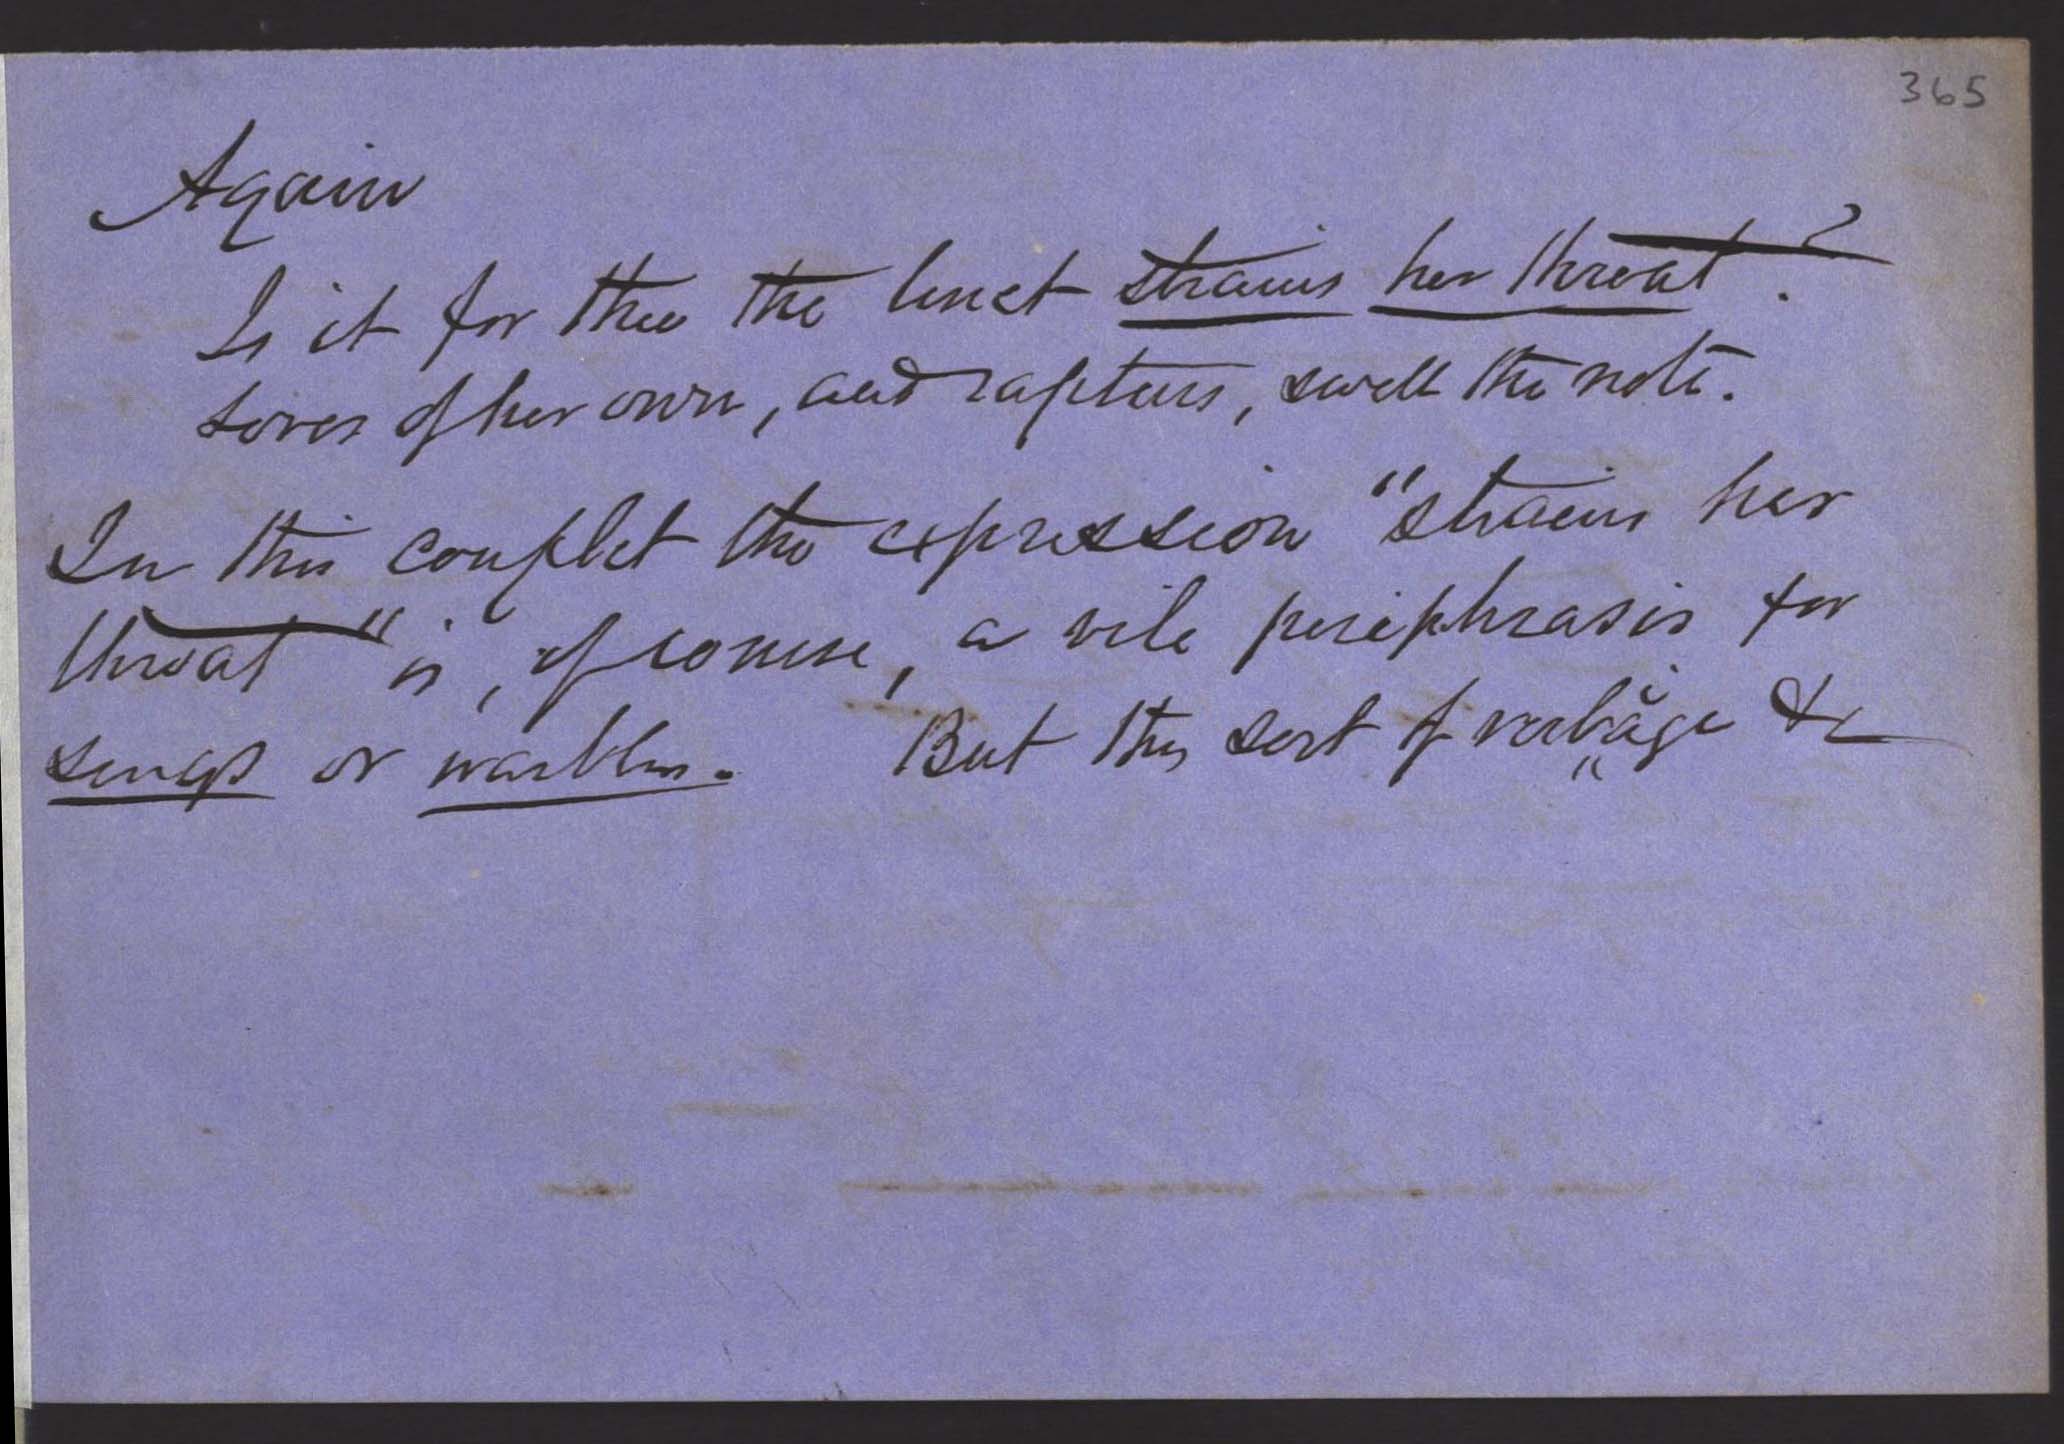 365
Again
Is it for thee the linet strains her throat?
Loves of her own, and raptures, swell the note.
In this couplet the expression "strains her
throat" is, of course, a vile periphrasis for
sings or warbles. But this sort of verbage &c